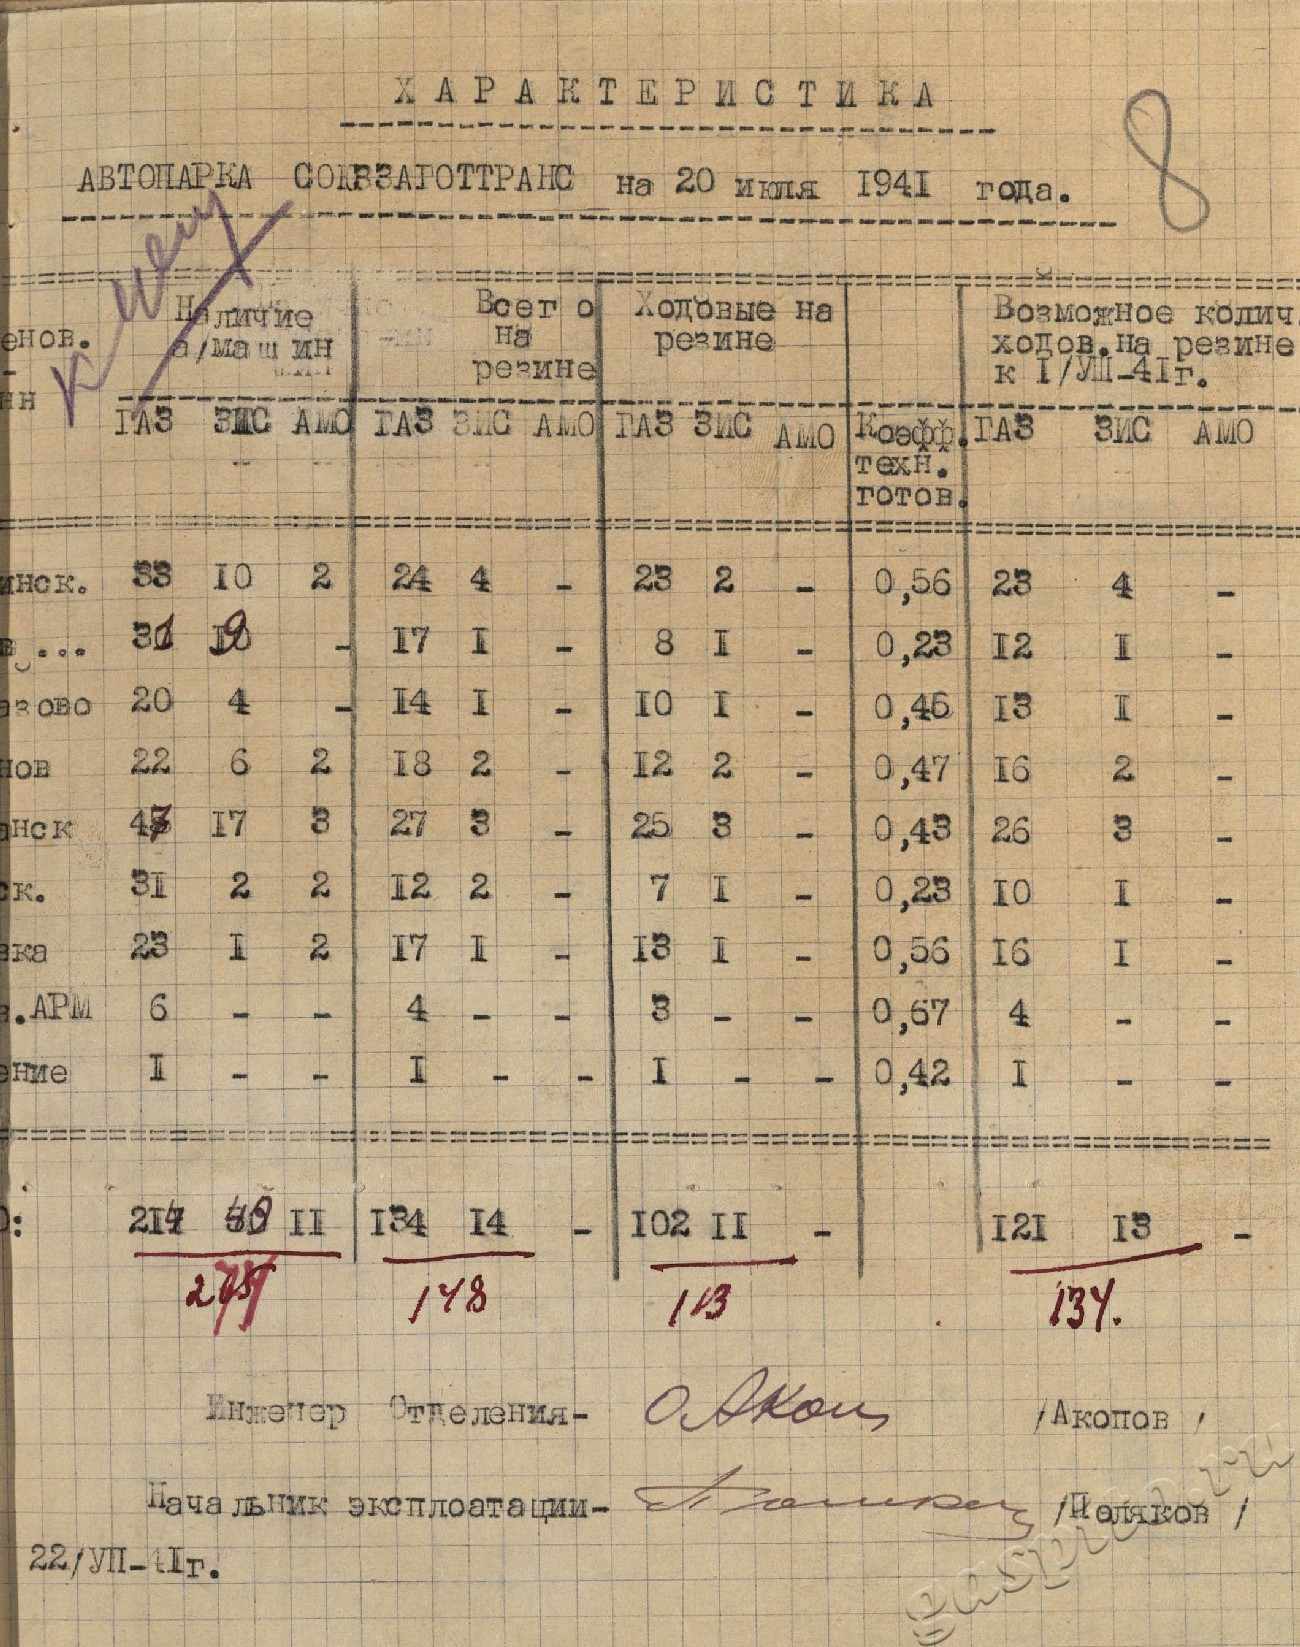 ХАРАКТЕРИСТИКА
8
АВТОПАРКА СОЮЗЗАГОТТРАНС на 20 июля 1941 года.
енов. Наличие а/машин Всего на резине Ходовые на резине Возможное колич. ходов. на резине к I/УШ-41г.
нн ГАЗ ЗИС АМО ГАЗ ЗИС АМО ГАЗ ЗИС АМО Коэфф. техн. готов. ГАЗ ЗИС АМО
инск. 33 10 2 24 4 - 23 2 - 0,56 23 4 -
в... 31 9 - 17 I - 8 I - 0,23 12 I -
азово 20 4 - 14 I - 10 I - 0,45 13 I -
нов 22 6 2 18 2 - 12 2 - 0,47 16 2 -
анск 47 17 3 27 3 - 25 3 - 0,43 26 3 -
ск. 31 2 2 12 2 - 7 I - 0,23 10 I -
вка 23 I 2 17 I - 13 I - 0,56 16 I -
в.АРМ 6 - - 4 - - 3 - - 0,67 4 - -
ение I - - I - - I - - 0,42 I - -
О: 214 49 11 134 14 - 102 11 - 121 13 -
148 113 134.
Инженер Отделения- /Акопов/
Начальник эксплоатации- /Поляков/
22/УП-41г.
gaspiro.ru